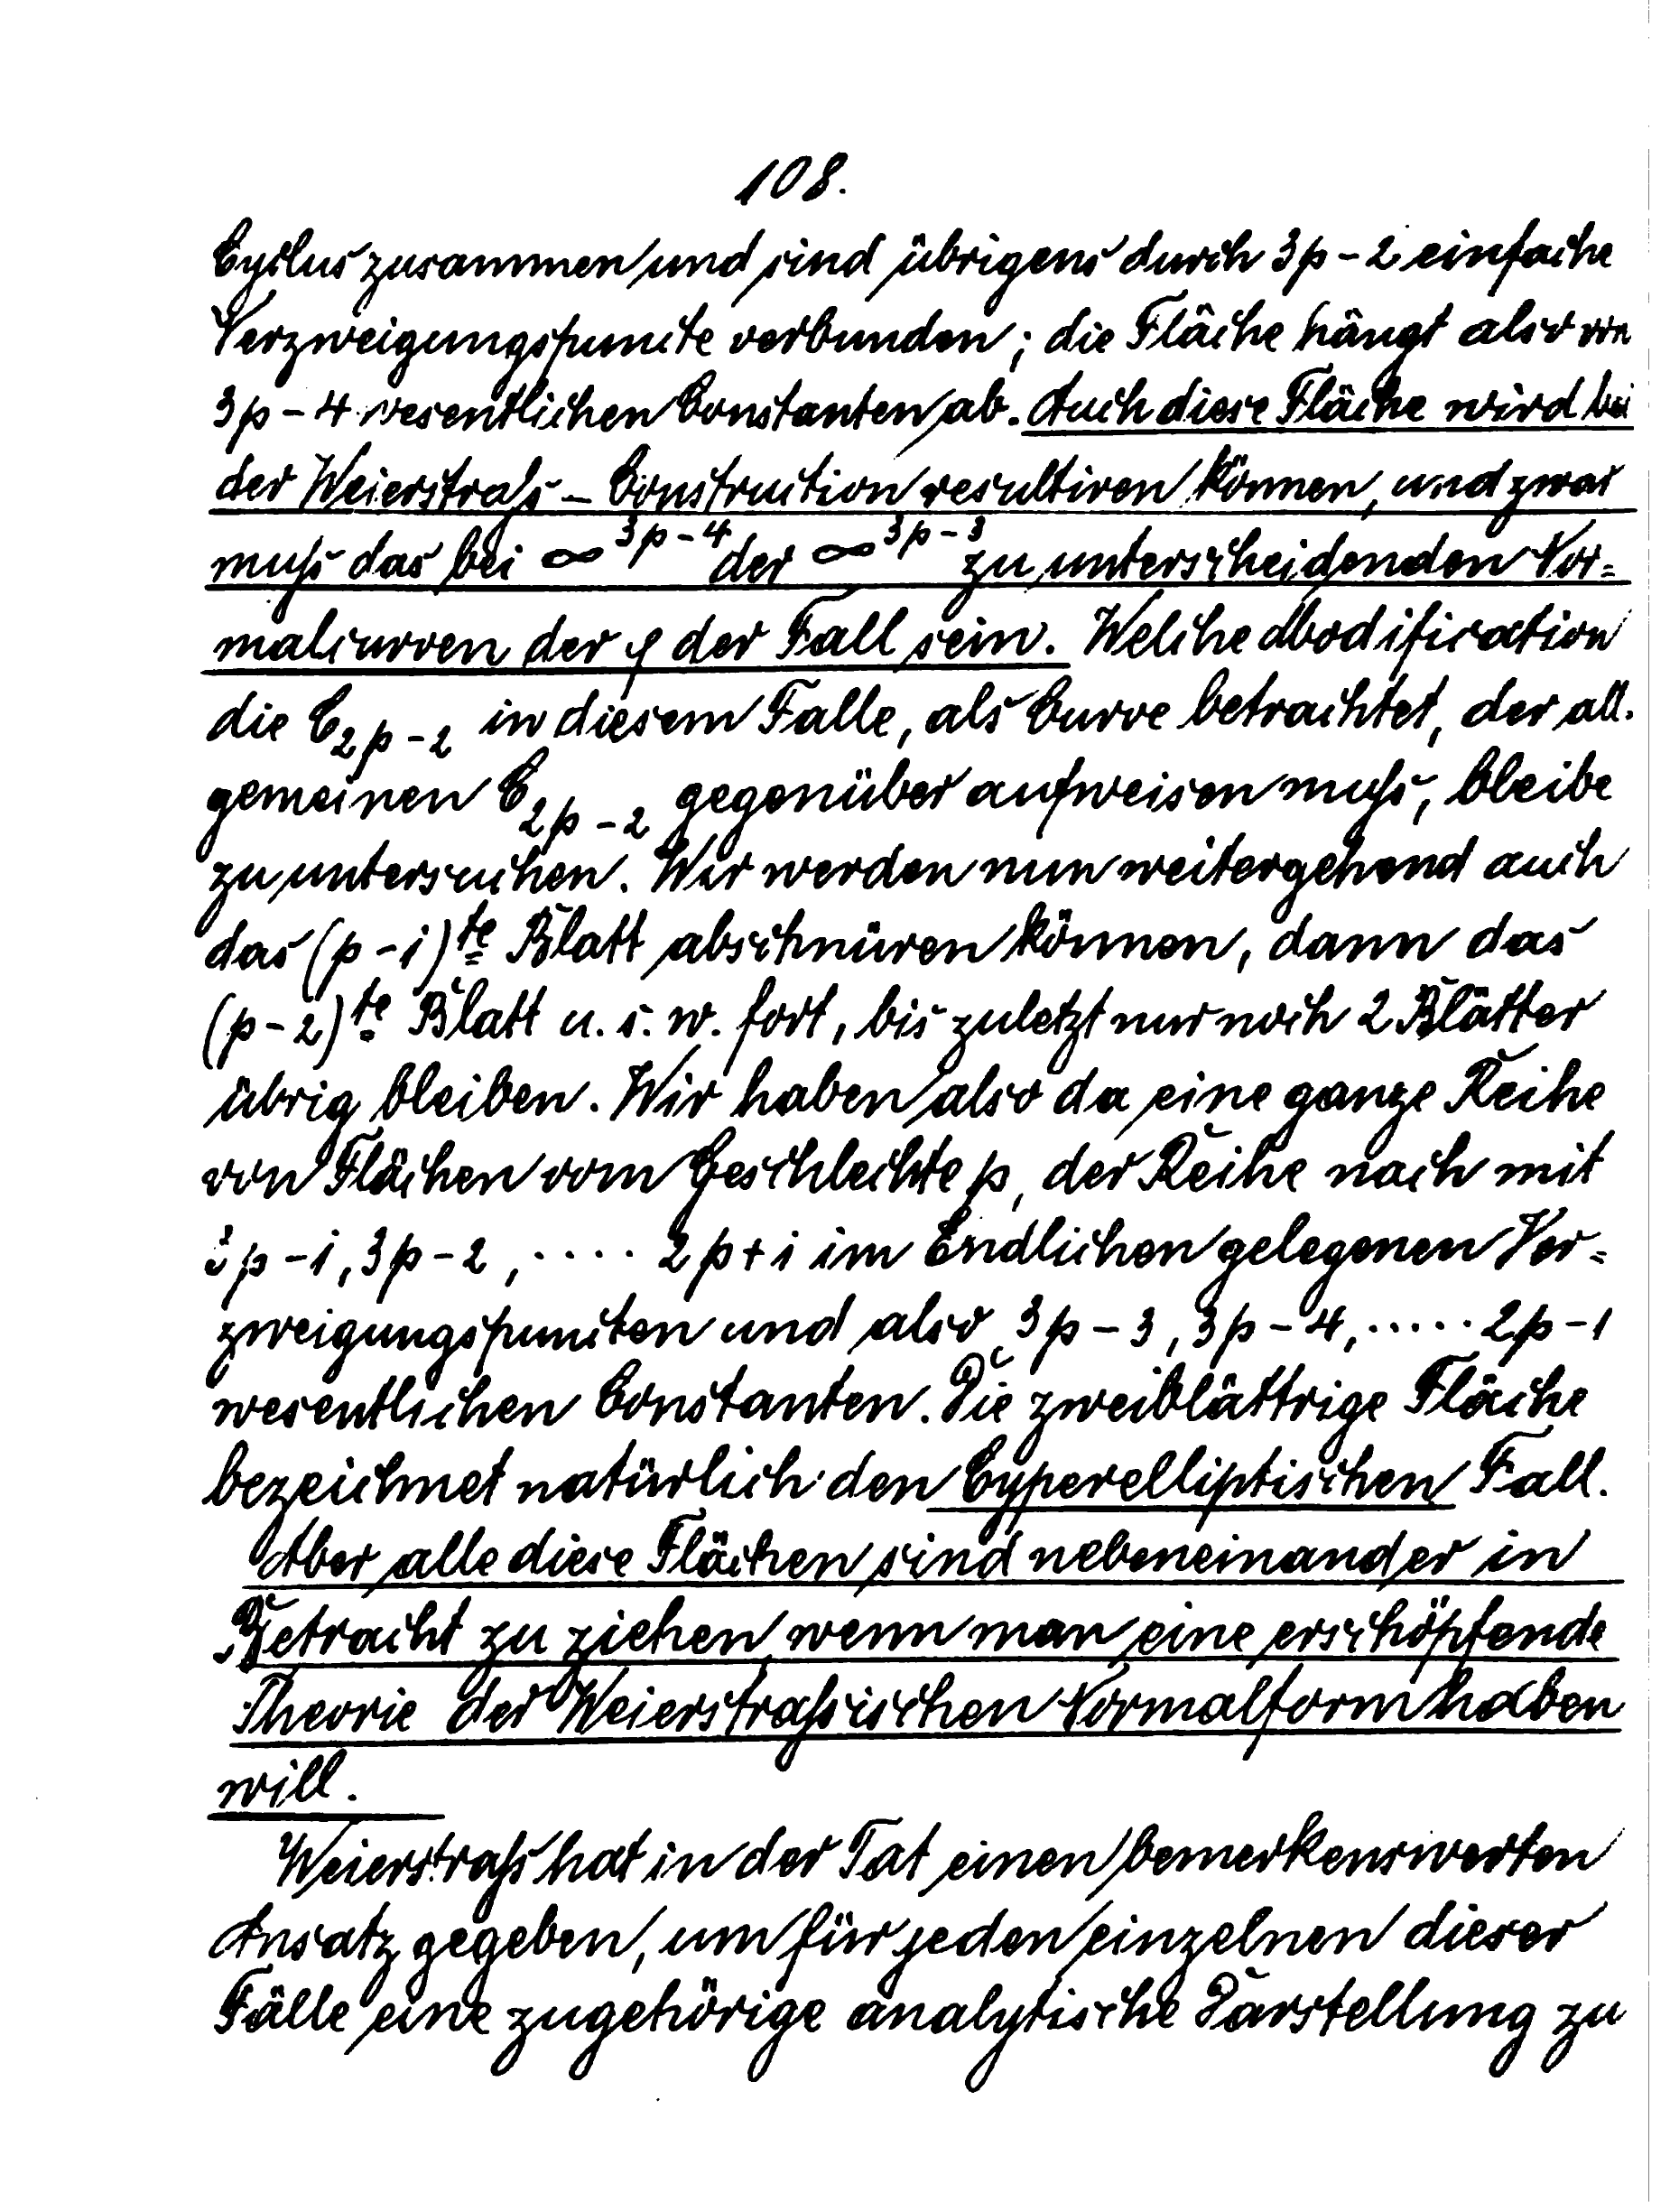 108.
Cyclus zusammen und sind übrigens durch 3p-2 einfache
Verzweigungspuncte verbunden; die Fläche hängt also von
3p-4 wesentlichen Constanten ab. Auch diese Fläche wird bei
der Weierstrass-Construction resultiren können, und zwar
muss das bei ∞^{3p-4} der ∞^{3p-3} zu unterscheidenden Nor=
malcurven der φ der Fall sein. Welche Modification
die C_{2p-2} in diesem Falle, als Curve betrachtet, der all.
gemeinen C_{2p-2} gegenüber aufweisen muss, bleibe
zu untersuchen. Wir werden nun weitergehend auch
das (p-1)te Blatt abschnüren können, dann das
(p-2)te Blatt u. s. w. fort, bis zuletzt nur noch 2 Blätter
übrig bleiben. Wir haben also da eine ganze Reihe
von Flächen vom Geschlechte p, der Reihe nach mit
3p-1, 3p-2, .... 2p+1 im Endlichen gelegenen Ver=
zweigungspuncten und also 3p-3, 3p-4, ..... 2p-1
wesentlichen Constanten. Die zweiblättrige Fläche
bezeichnet natürlich den hyperelliptischen Fall.
Aber alle diese Flächen sind nebeneinander in
Betracht zu ziehen, wenn man eine erschöpfende
Theorie der Weierstrassischen Normalform haben
will.
Weierstrass hat in der Tat einen bemerkenswerten
Ansatz gegeben, um für jeden einzelnen dieser
Fälle eine zugehörige analytische Darstellung zu